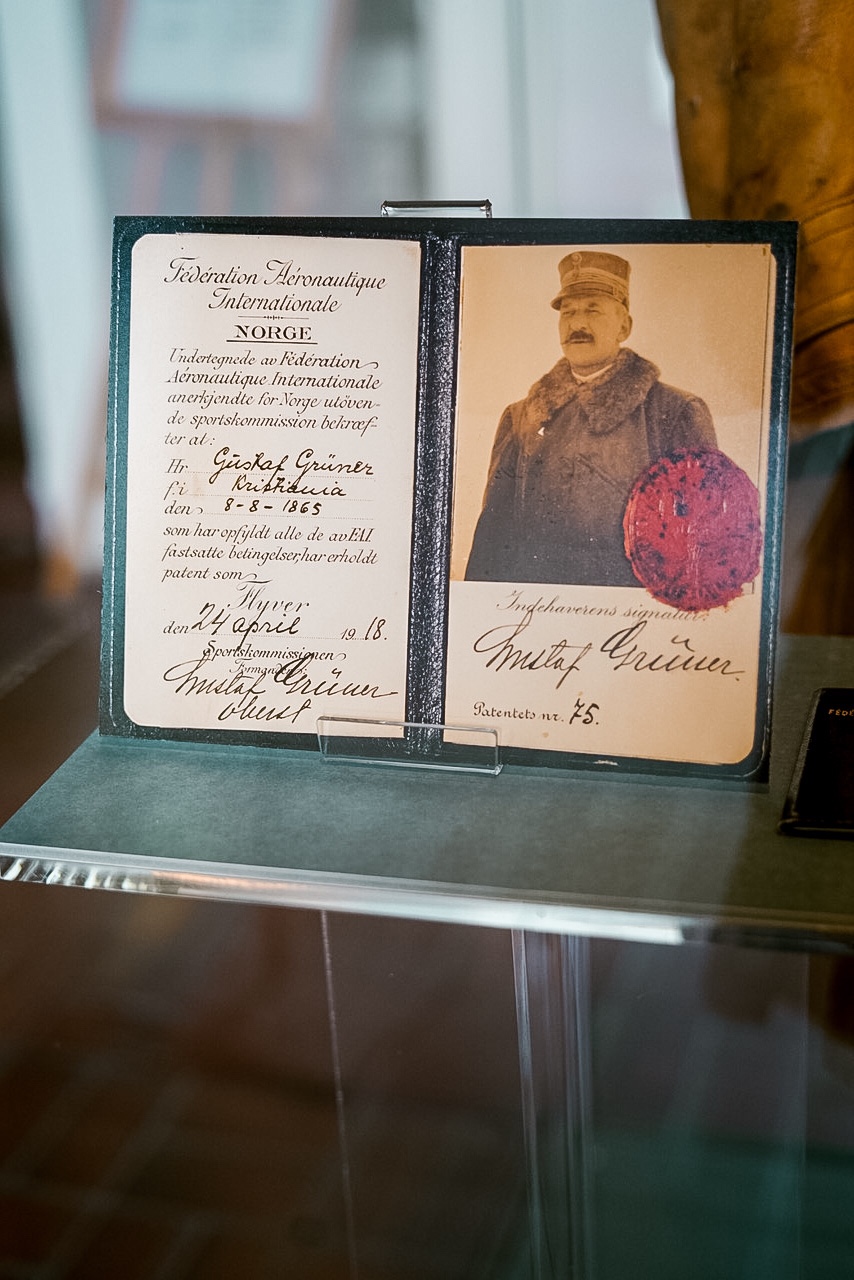 Fédération Aéronautique
Internationale
NORGE
Undertegnede av Fédération
Aéronautique Internationale
anerkjendte for Norge utöven-
de sportskommission bekræf-
ter at:
Hr Gustaf Grüner
f. i Kristiania
den 8-8-1865
som har opfyldt alle de av FAI
fastsatte betingelser, har erholdt
patent som
Flyver
den 24 april 1918.
Sportskommissionen
Formanden
Gustaf Grüner
oberst
Indehaverens signatur:
Gustaf Grüner.
Patentets nr. 75.
FÉDÉ